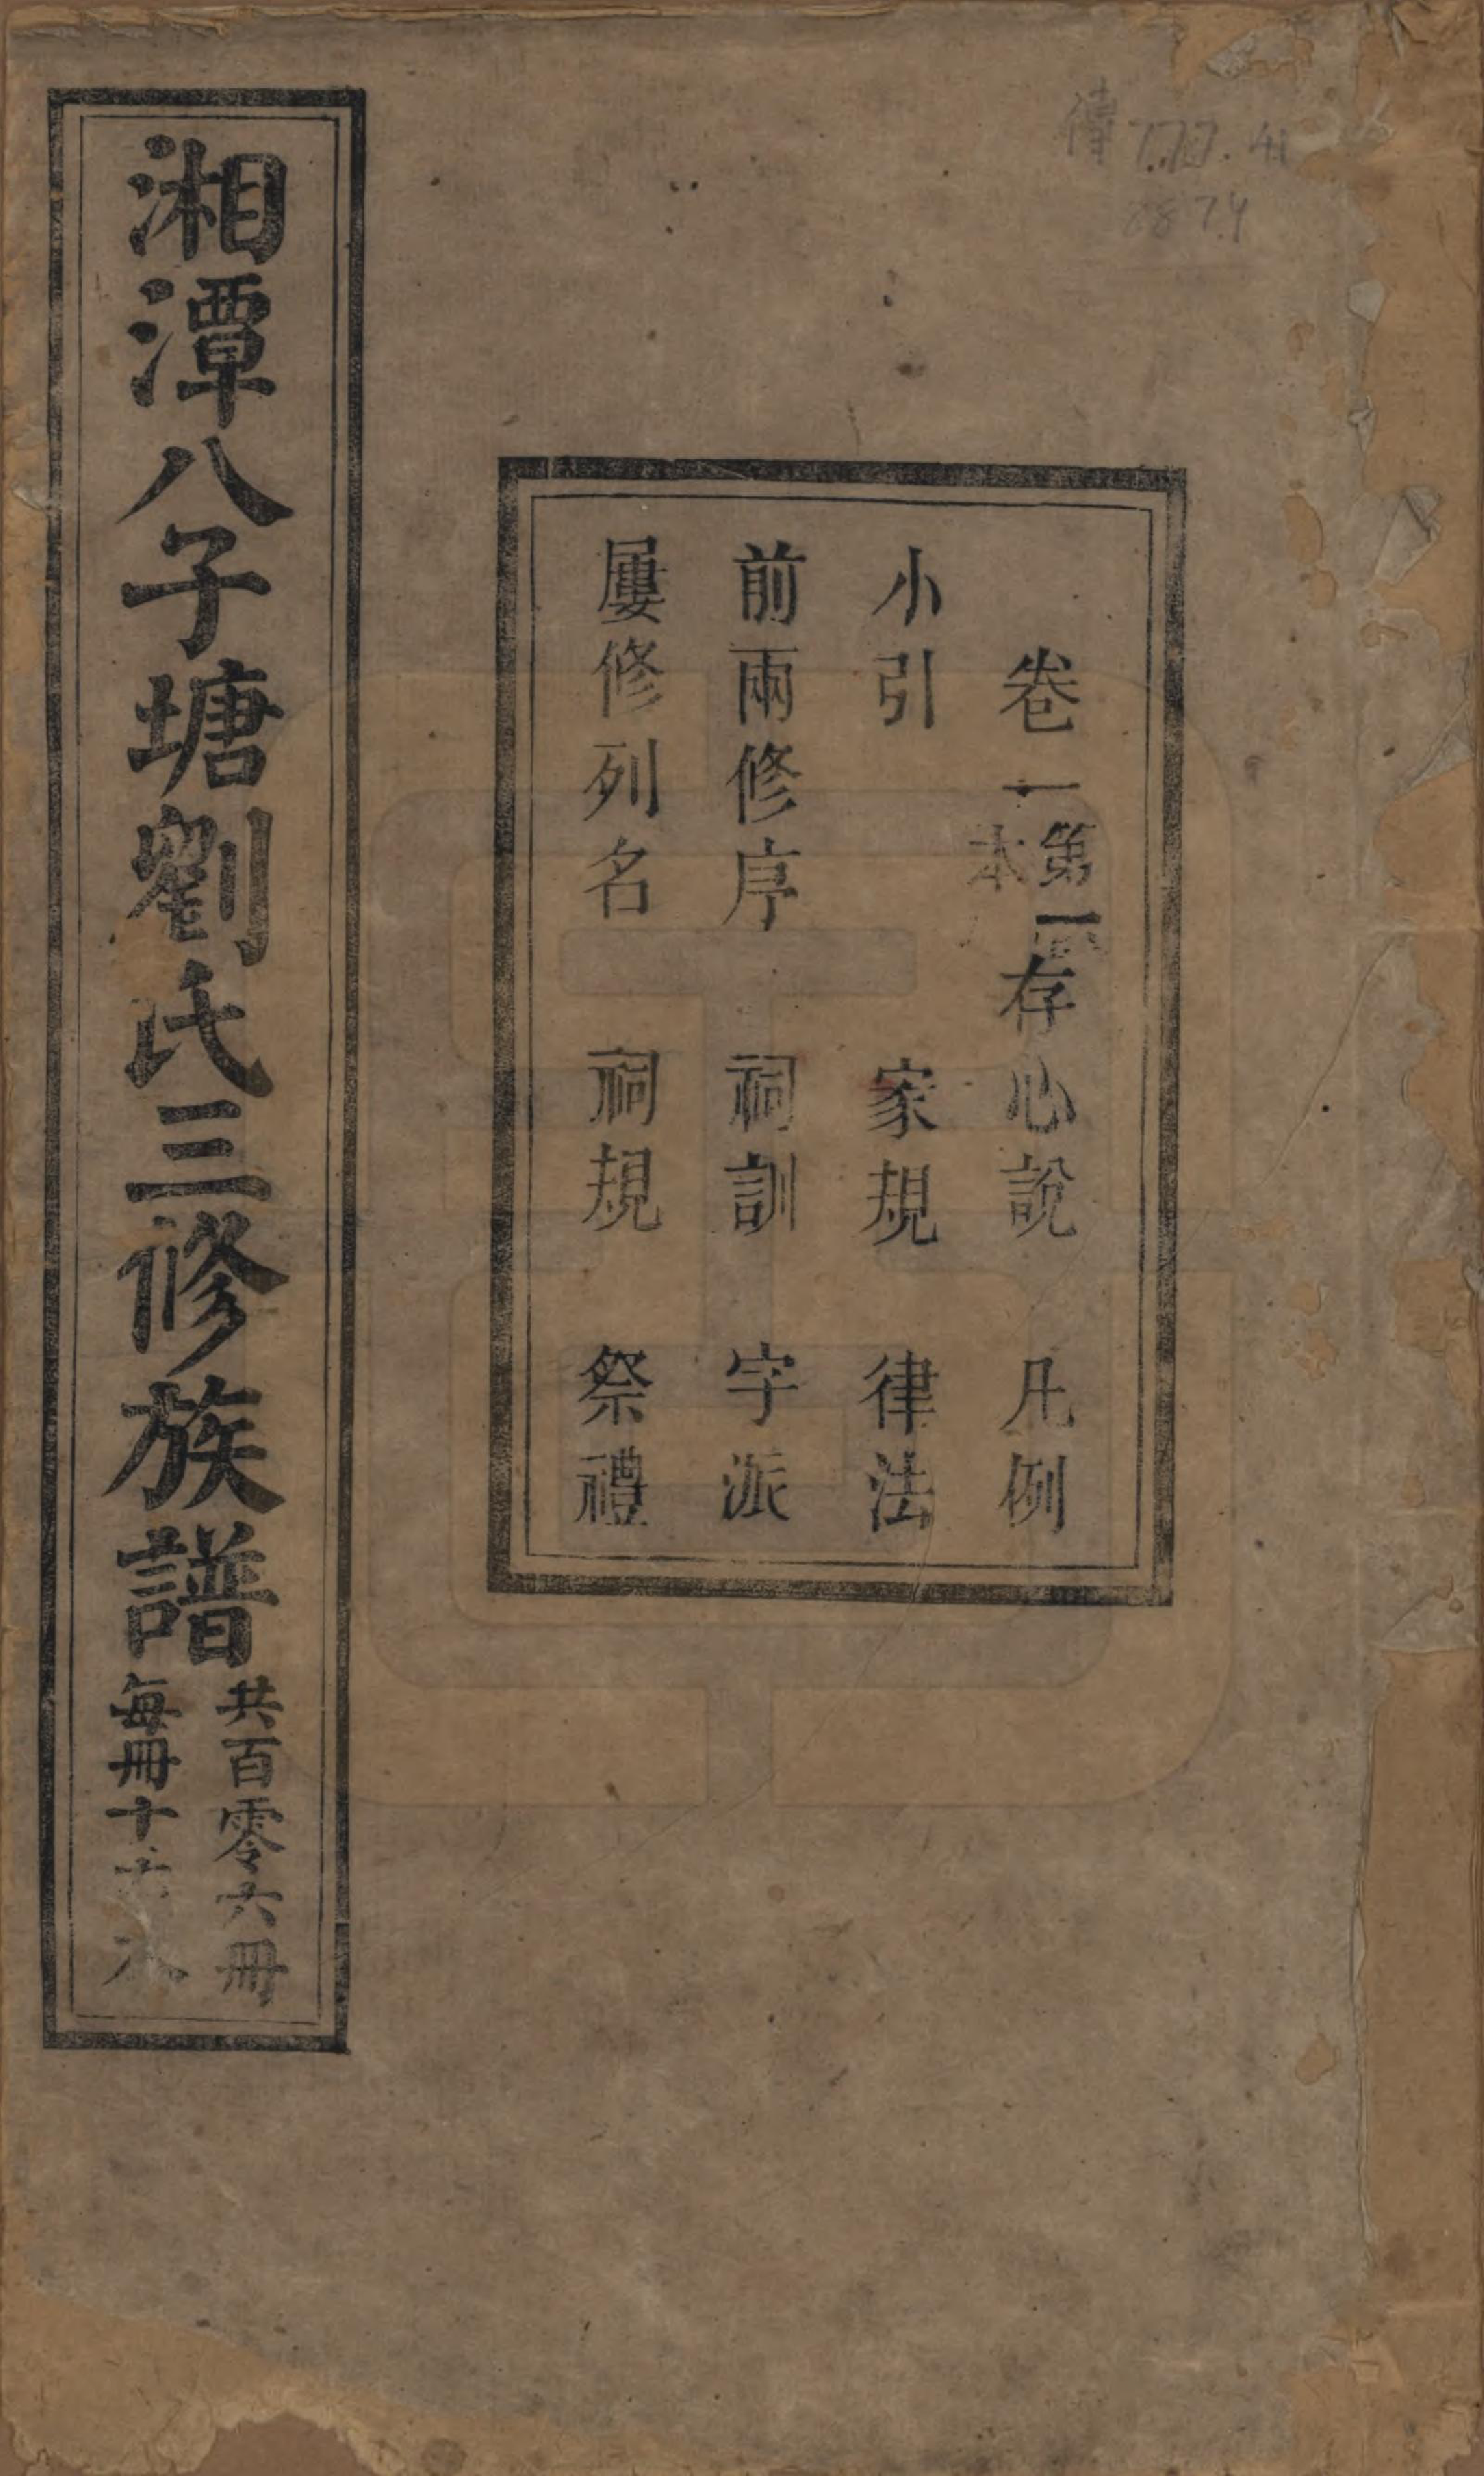 傳 777.41
8874
卷一 第一本 存心說 凡例
小引 家規 律法
前兩修序 祠訓 字派
屢修列名 祠規 祭禮
湘潭八子塘劉氏三修族譜
共百零六冊
每冊十六本